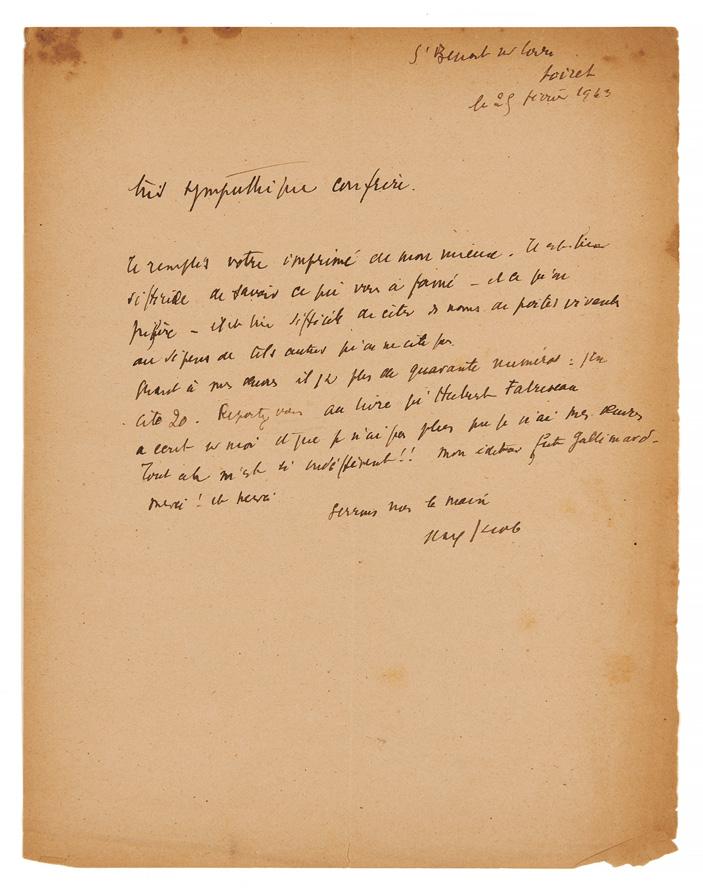 St Benoit sur Loire
Loiret
le 25 février 1943
très sympathique confrère.
Je remplis votre imprimé de mon mieux. Il est bien
difficile de savoir ce qui vous a formé – et ce qu'on
préfère – il est bien difficile de citer des noms de poètes vivants
ou si peu de tels autres qu'on ne cite pas
Quant à mes œuvres il y a plus de quarante numéros : j'en
cite 20. Reportez vous au livre qu'Hubert Fabureau
a écrit sur moi et que je n'ai pas plus que je n'ai mes œuvres
Tout cela m'est si indifférent!! mon éditeur fut Gallimard –
merci ! et merci
Serrons nous la main
Max Jacob